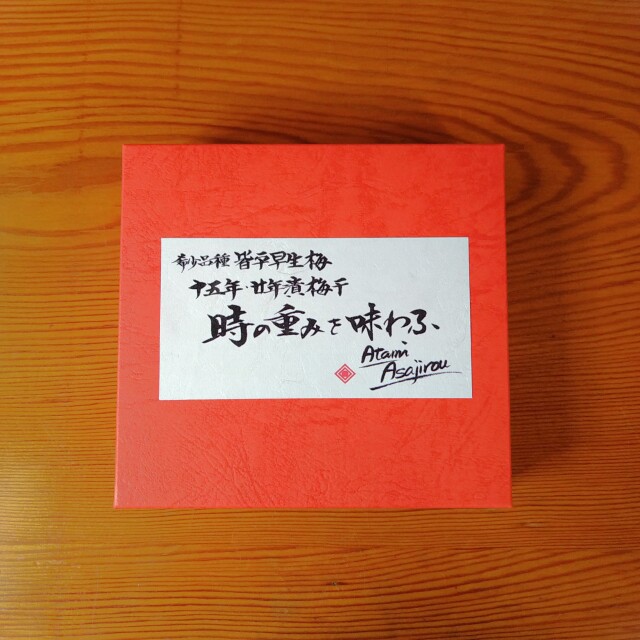 希少品種 皆平早生梅
十五年・廿年漬梅干
時の重みを味わふ、
Atami
Asajirou